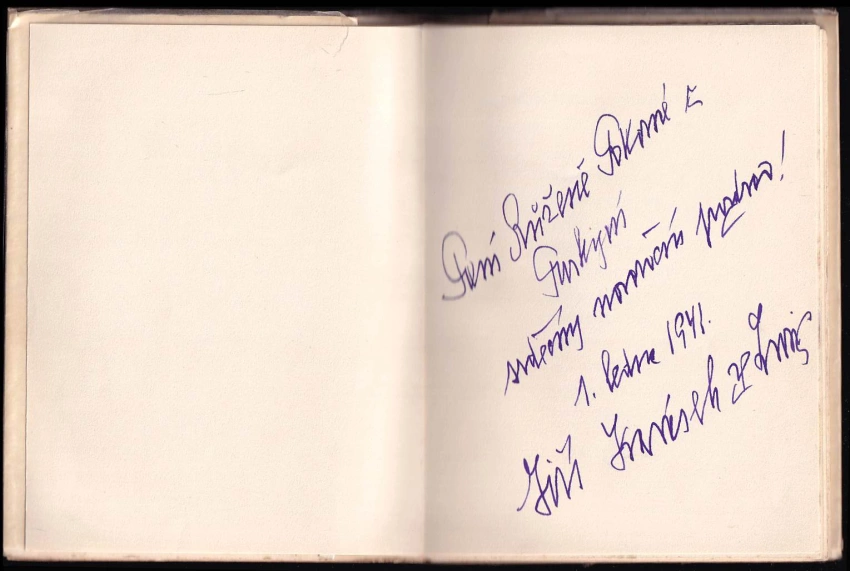 Paní Růženě Pokorné
srdečný novoroční pozdrav!
1. ledna 1941.
Jiří Karásek ze Lvovic